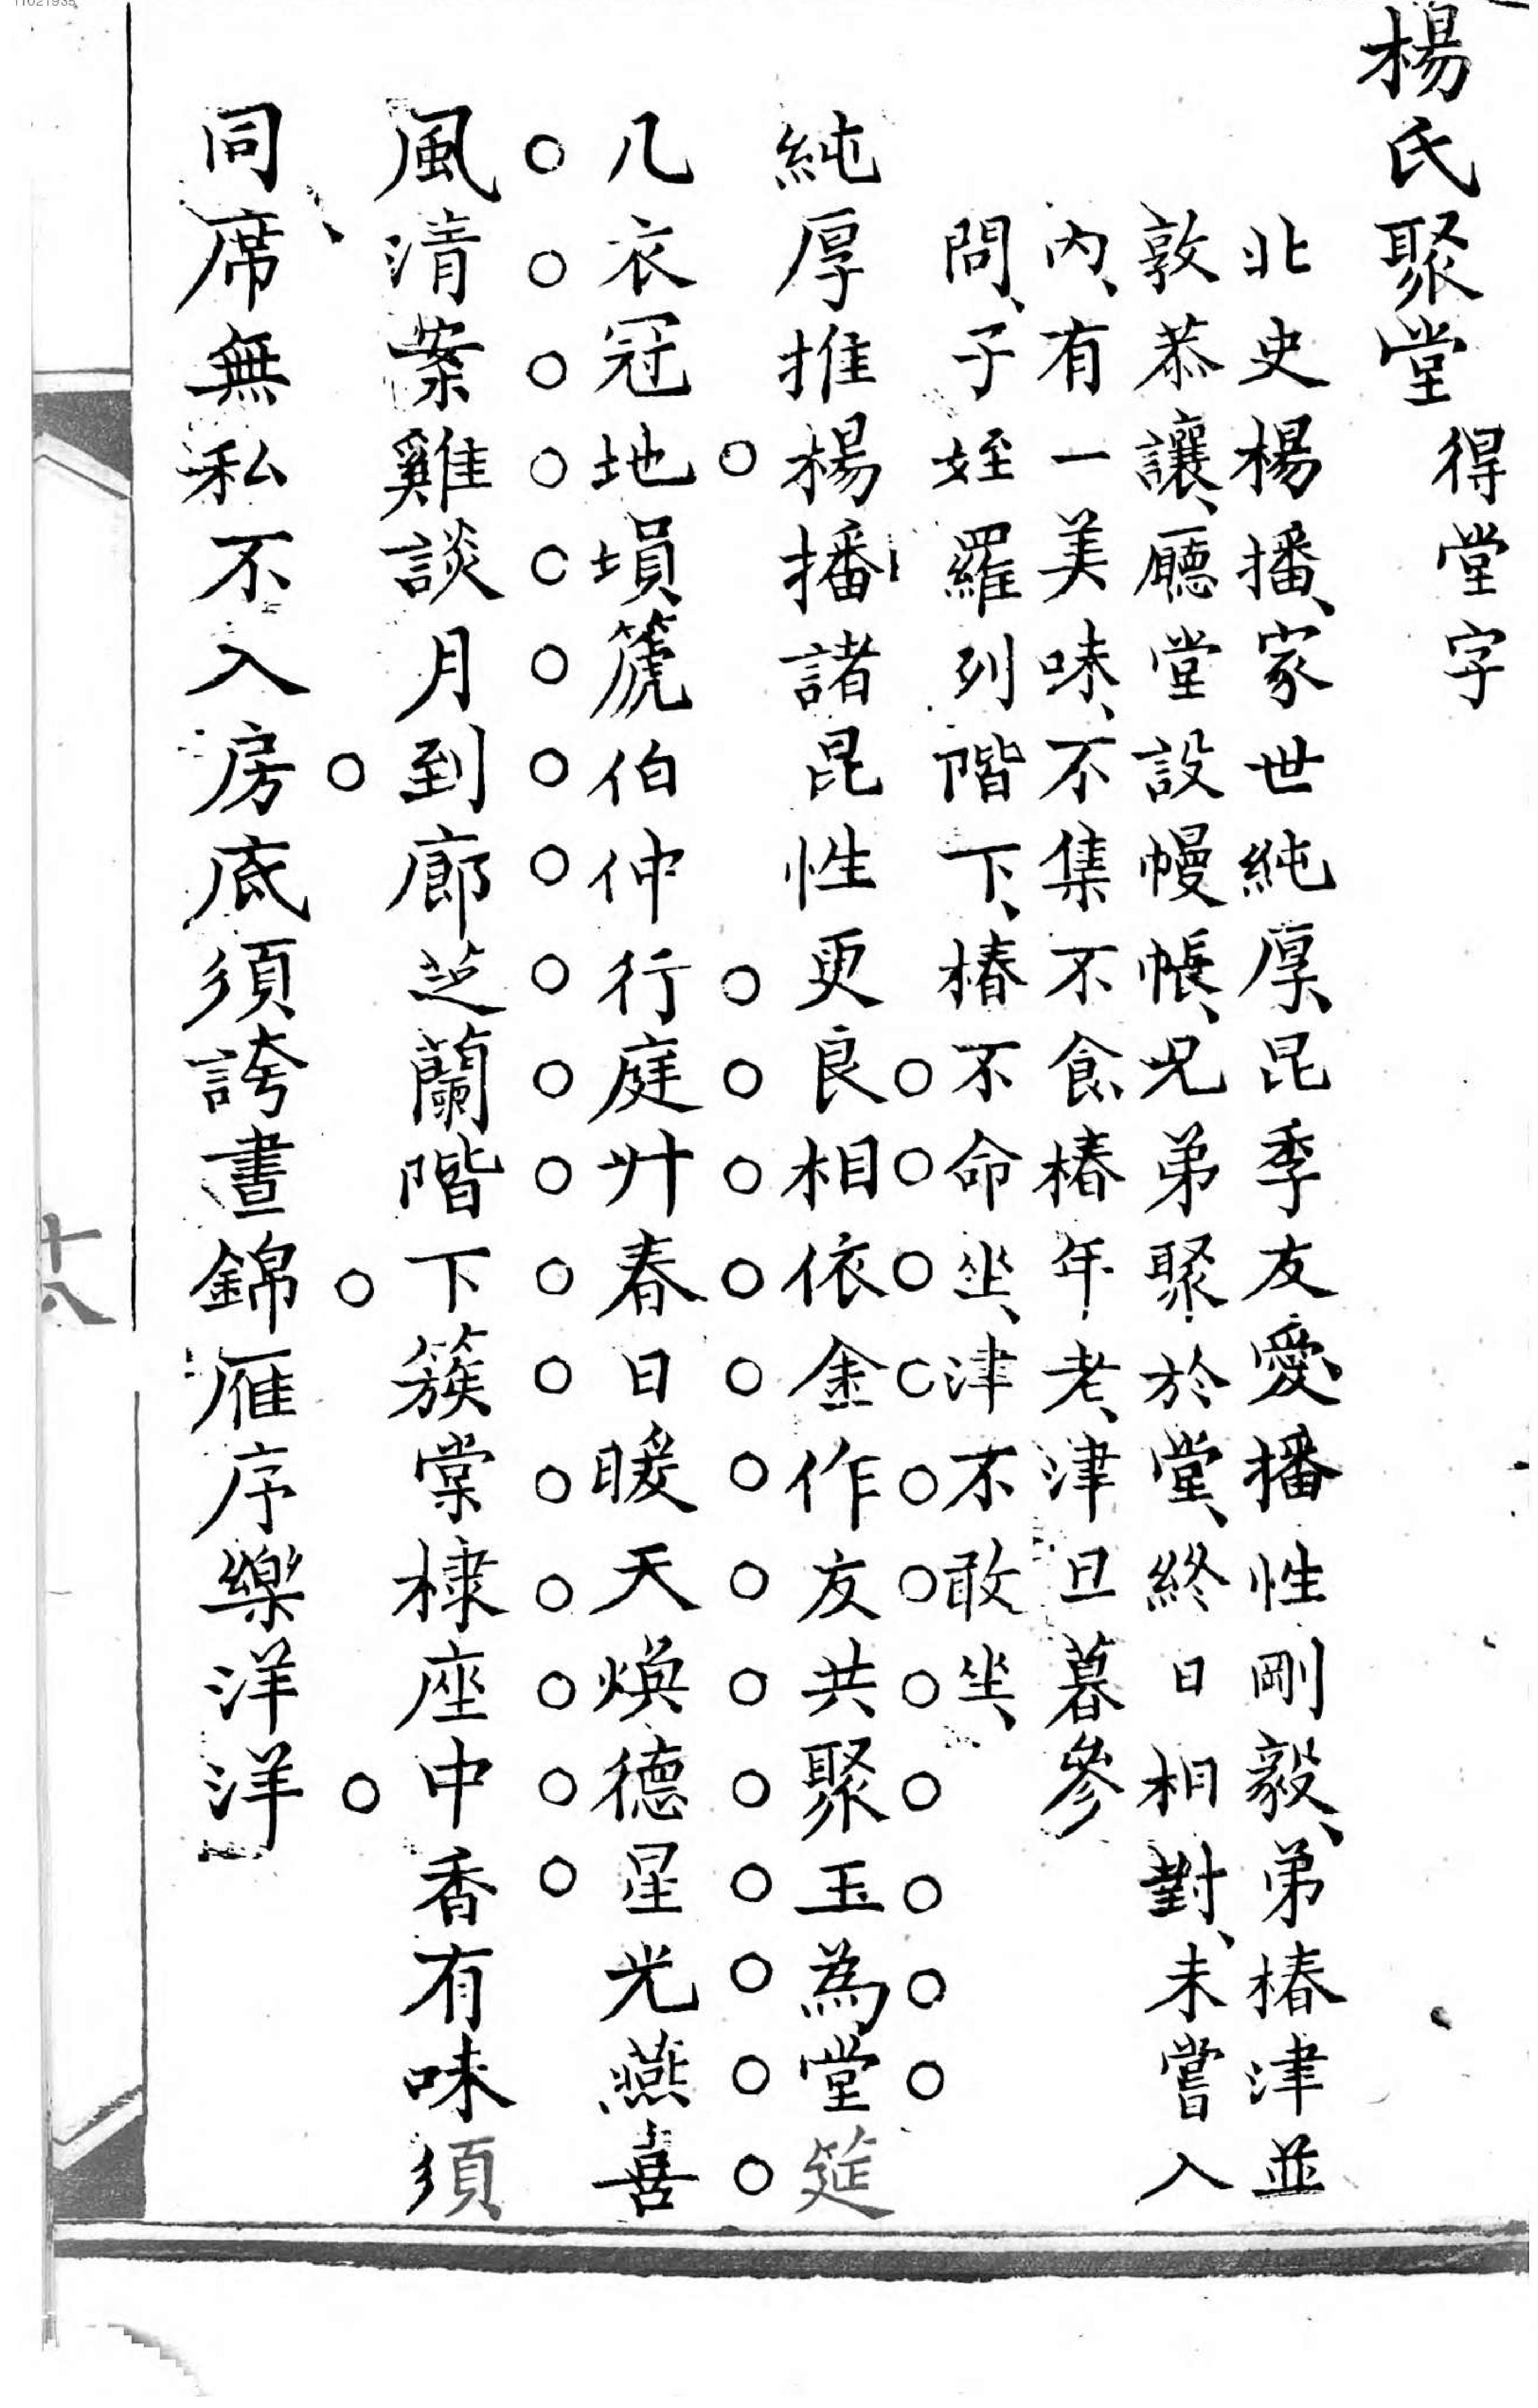 楊氏聚堂 得堂字
北史楊播、家世純厚、昆季友愛、播性剛毅、弟椿津並
敦恭讓、廳堂設幔帳、兄弟聚於堂、終日相對、未嘗入
內、有一美味、不集不食、椿年老、津旦暮參
問、子姪羅列階下、椿不命坐、津不敢坐、
純厚推楊播諸昆性更良相依金作友共聚玉為堂筵
几衣冠地塤篪伯仲行庭艸春日暖天煥德星光燕喜
風清案雞談月到廊芝蘭階下簇棠棣座中香有味須
同席無私不入房底須誇晝錦雁序樂洋洋
十八
11021935